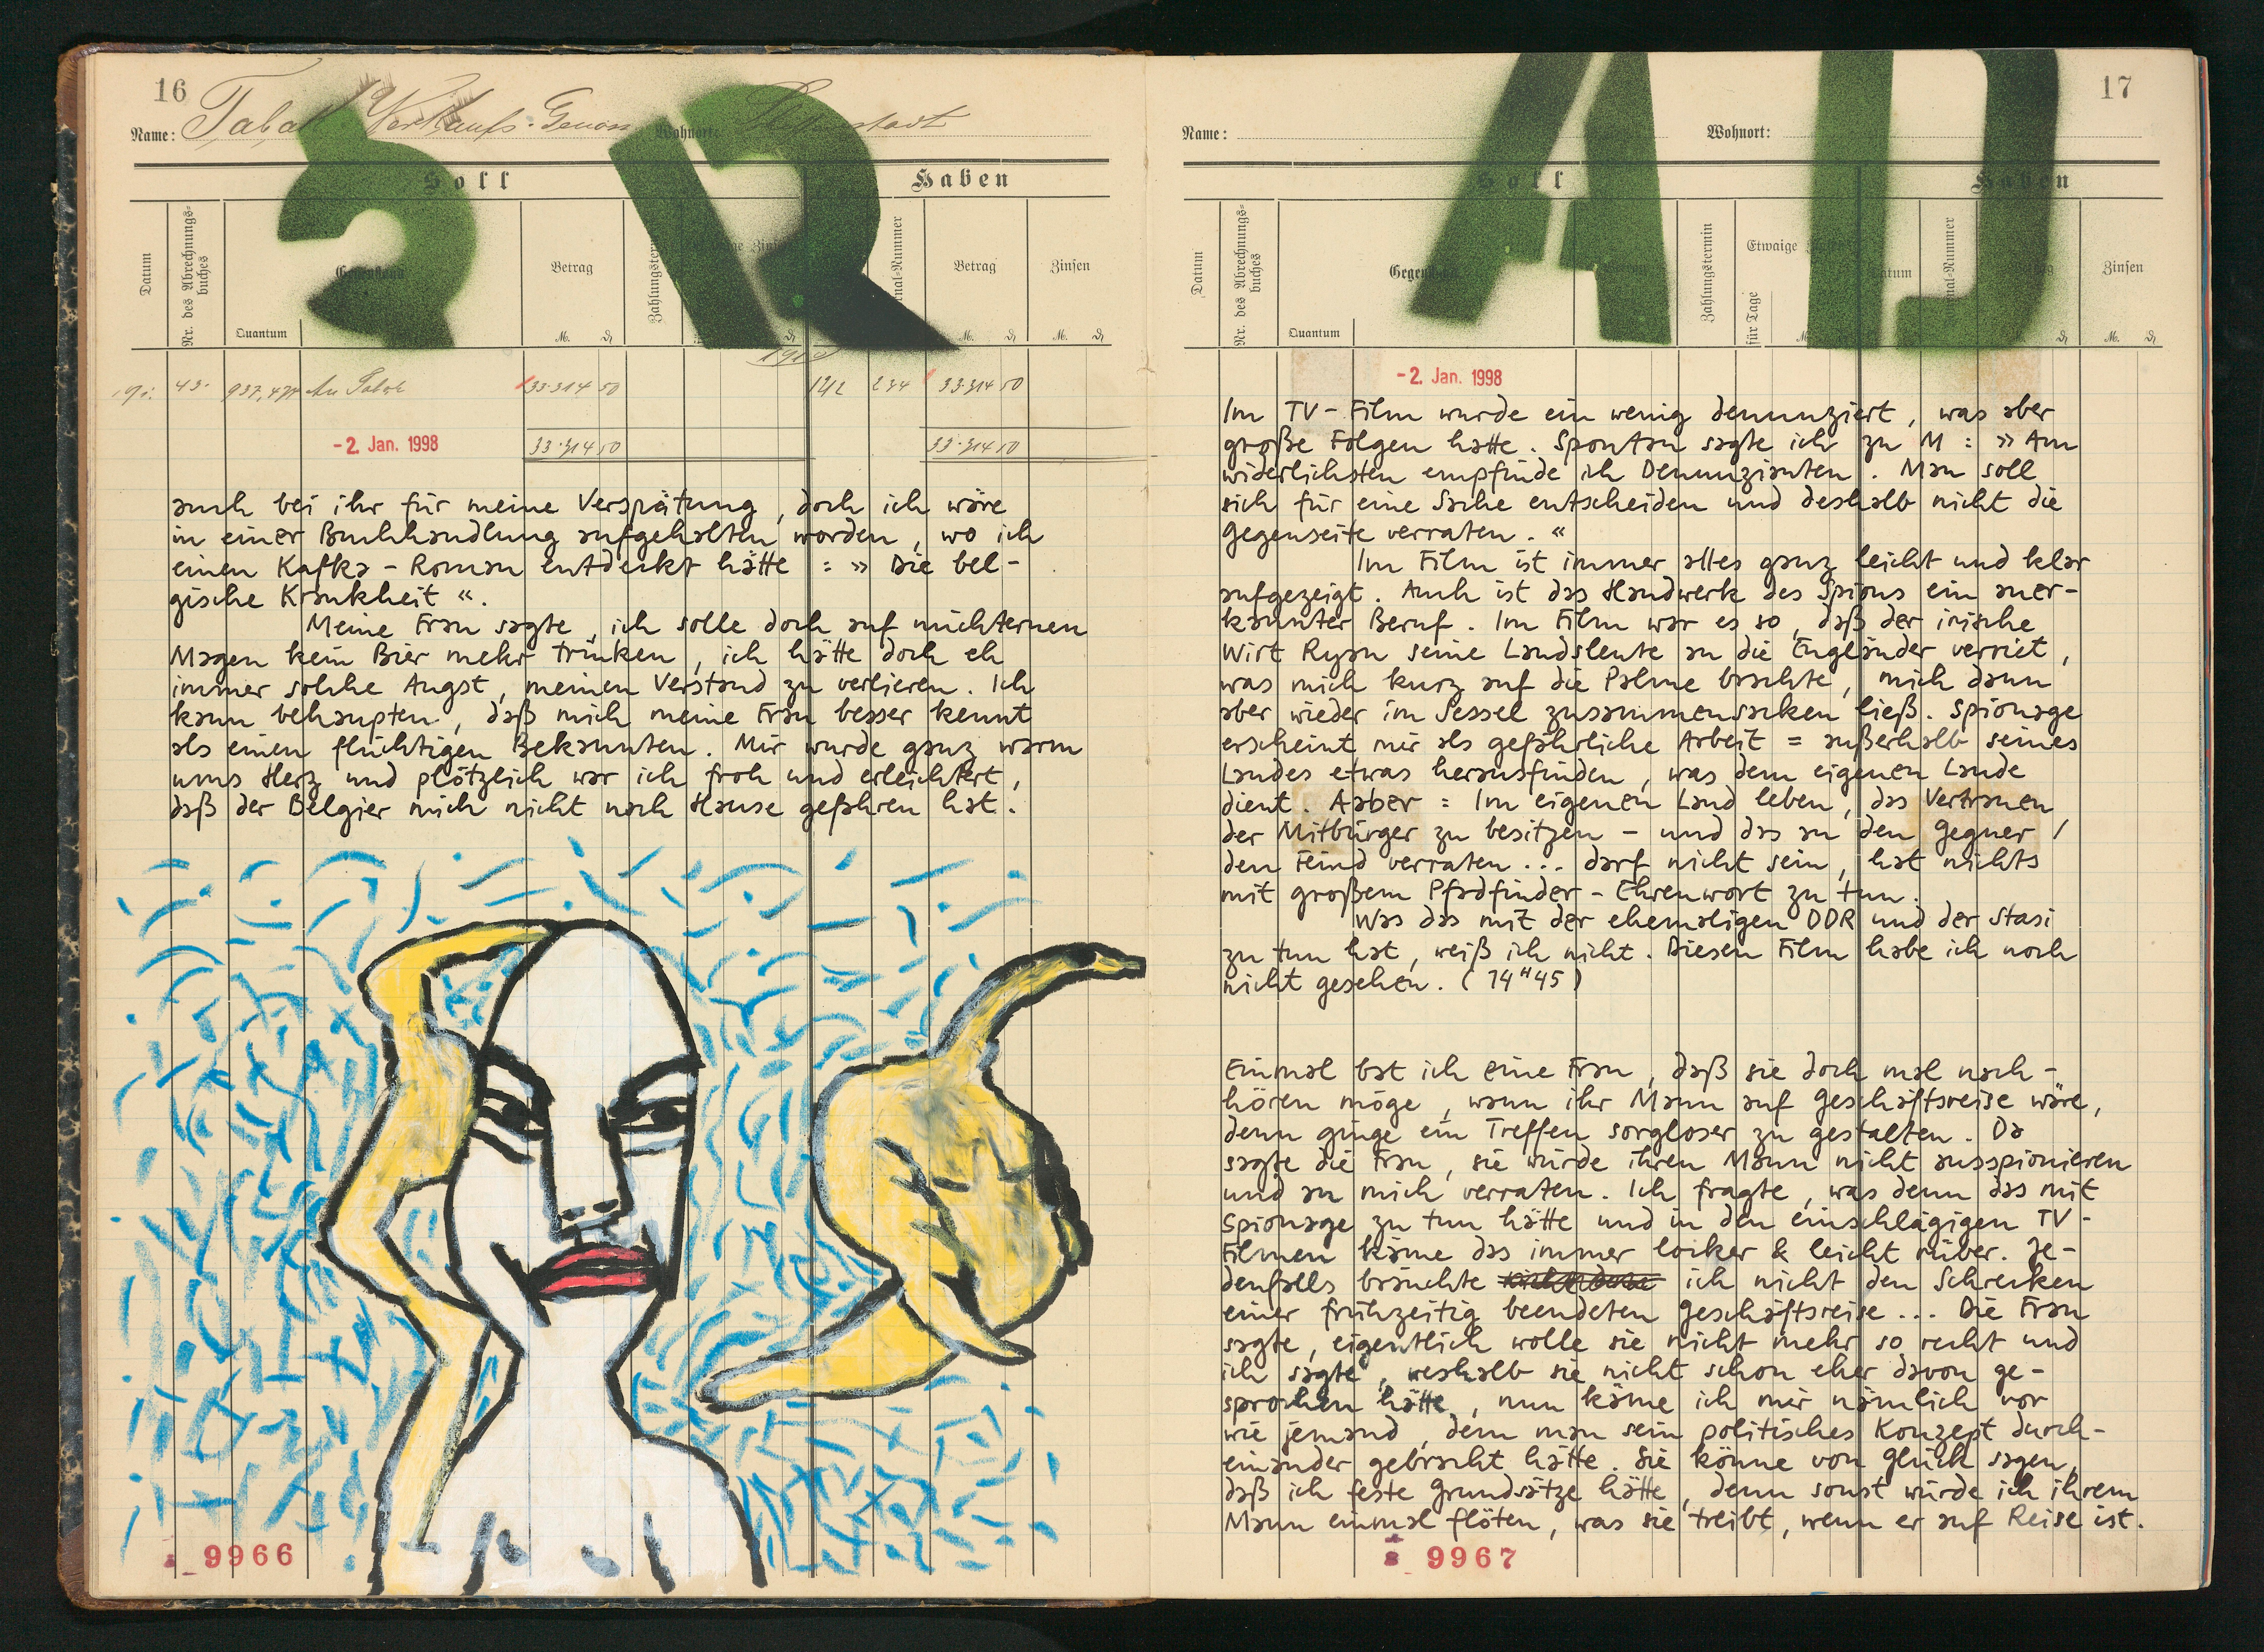 16
Name: Tabak Verkaufs-Genoss Wohnort:
Soll Haben
Datum
Nr. des Abrechnungs-
buches
Gegenstand
Quantum
Betrag
M. ₰
Betrag
M. ₰
Zinsen
M. ₰
33·314 50 33·314 50
-2. Jan. 1998
33·314 50 33·314 50
auch bei ihr für meine Verspätung, doch ich wäre
in einer Buchhandlung aufgehalten worden, wo ich
einen Kafka-Roman entdeckt hätte: »Die bel-
gische Krankheit«.
Meine Frau sagte, ich solle doch auf nüchternen
Magen kein Bier mehr trinken, ich hätte doch eh
immer solche Angst, meinen Verstand zu verlieren. Ich
kann behaupten, daß mich meine Frau besser kennt
als einen flüchtigen Bekannten. Mir wurde ganz warm
ums Herz und plötzlich war ich froh und erleichtert,
daß der Belgier mich nicht nach Hause gefahren hat.
9966
17
Name: Wohnort:
Soll Haben
Datum
Nr. des Abrechnungs-
buches
Gegenstand
Quantum
Zahlungstermin
Etwaige
für Tage
Datum
Zinsen
M. ₰
-2. Jan. 1998
Im TV-Film wurde ein wenig denunziert, was aber
große Folgen hatte. Spontan sagte ich zu M: »Am
widerlichsten empfinde ich Denunzianten. Man soll
sich für eine Sache entscheiden und deshalb nicht die
Gegenseite verraten.«
Im Film ist immer alles ganz leicht und klar
aufgezeigt. Auch ist das Handwerk des Spions ein aner-
kannter Beruf. Im Film war es so, daß der irische
Wirt Ryan seine Landsleute an die Engländer verriet,
was mich kurz auf die Palme brachte, mich dann
aber wieder im Sessel zusammensacken ließ. Spionage
erscheint mir als gefährliche Arbeit = außerhalb seines
Landes etwas herausfinden, was dem eigenen Lande
dient. Aaber = Im eigenen Land leben, das Vertrauen
der Mitbürger zu besitzen - und das an den Gegner /
den Feind verraten... darf nicht sein, hat nichts
mit großem Pfadfinder-Ehrenwort zu tun.
Was das mit der ehemaligen DDR und der Stasi
zu tun hat, weiß ich nicht. Diesen Film habe ich noch
nicht gesehen. (14ʰ45)
Einmal bat ich eine Frau, daß sie doch mal nach-
hören möge, wann ihr Mann auf Geschäftsreise wäre,
denn ginge ein Treffen sorgloser zu gestalten. Da
sagte die Frau, sie würde ihren Mann nicht ausspionieren
und an mich verraten. Ich fragte, was denn das mit
Spionage zu tun hätte und in den einschlägigen TV-
Filmen käme das immer locker & leicht rüber. Je-
denfalls bräuchte ich nicht den Schrecken
einer frühzeitig beendeten Geschäftsreise... Die Frau
sagte, eigentlich wolle sie nicht mehr so recht und
ich sagte, weshalb sie nicht schon eher davon ge-
sprochen hätte, nun käme ich mir nämlich vor
wie jemand, dem man sein politisches Konzept durch-
einander gebracht hätte. Sie könne von Glück sagen,
daß ich feste Grundsätze hätte, denn sonst würde ich ihrem
Mann einmal flöten, was sie treibt, wenn er auf Reise ist.
9967